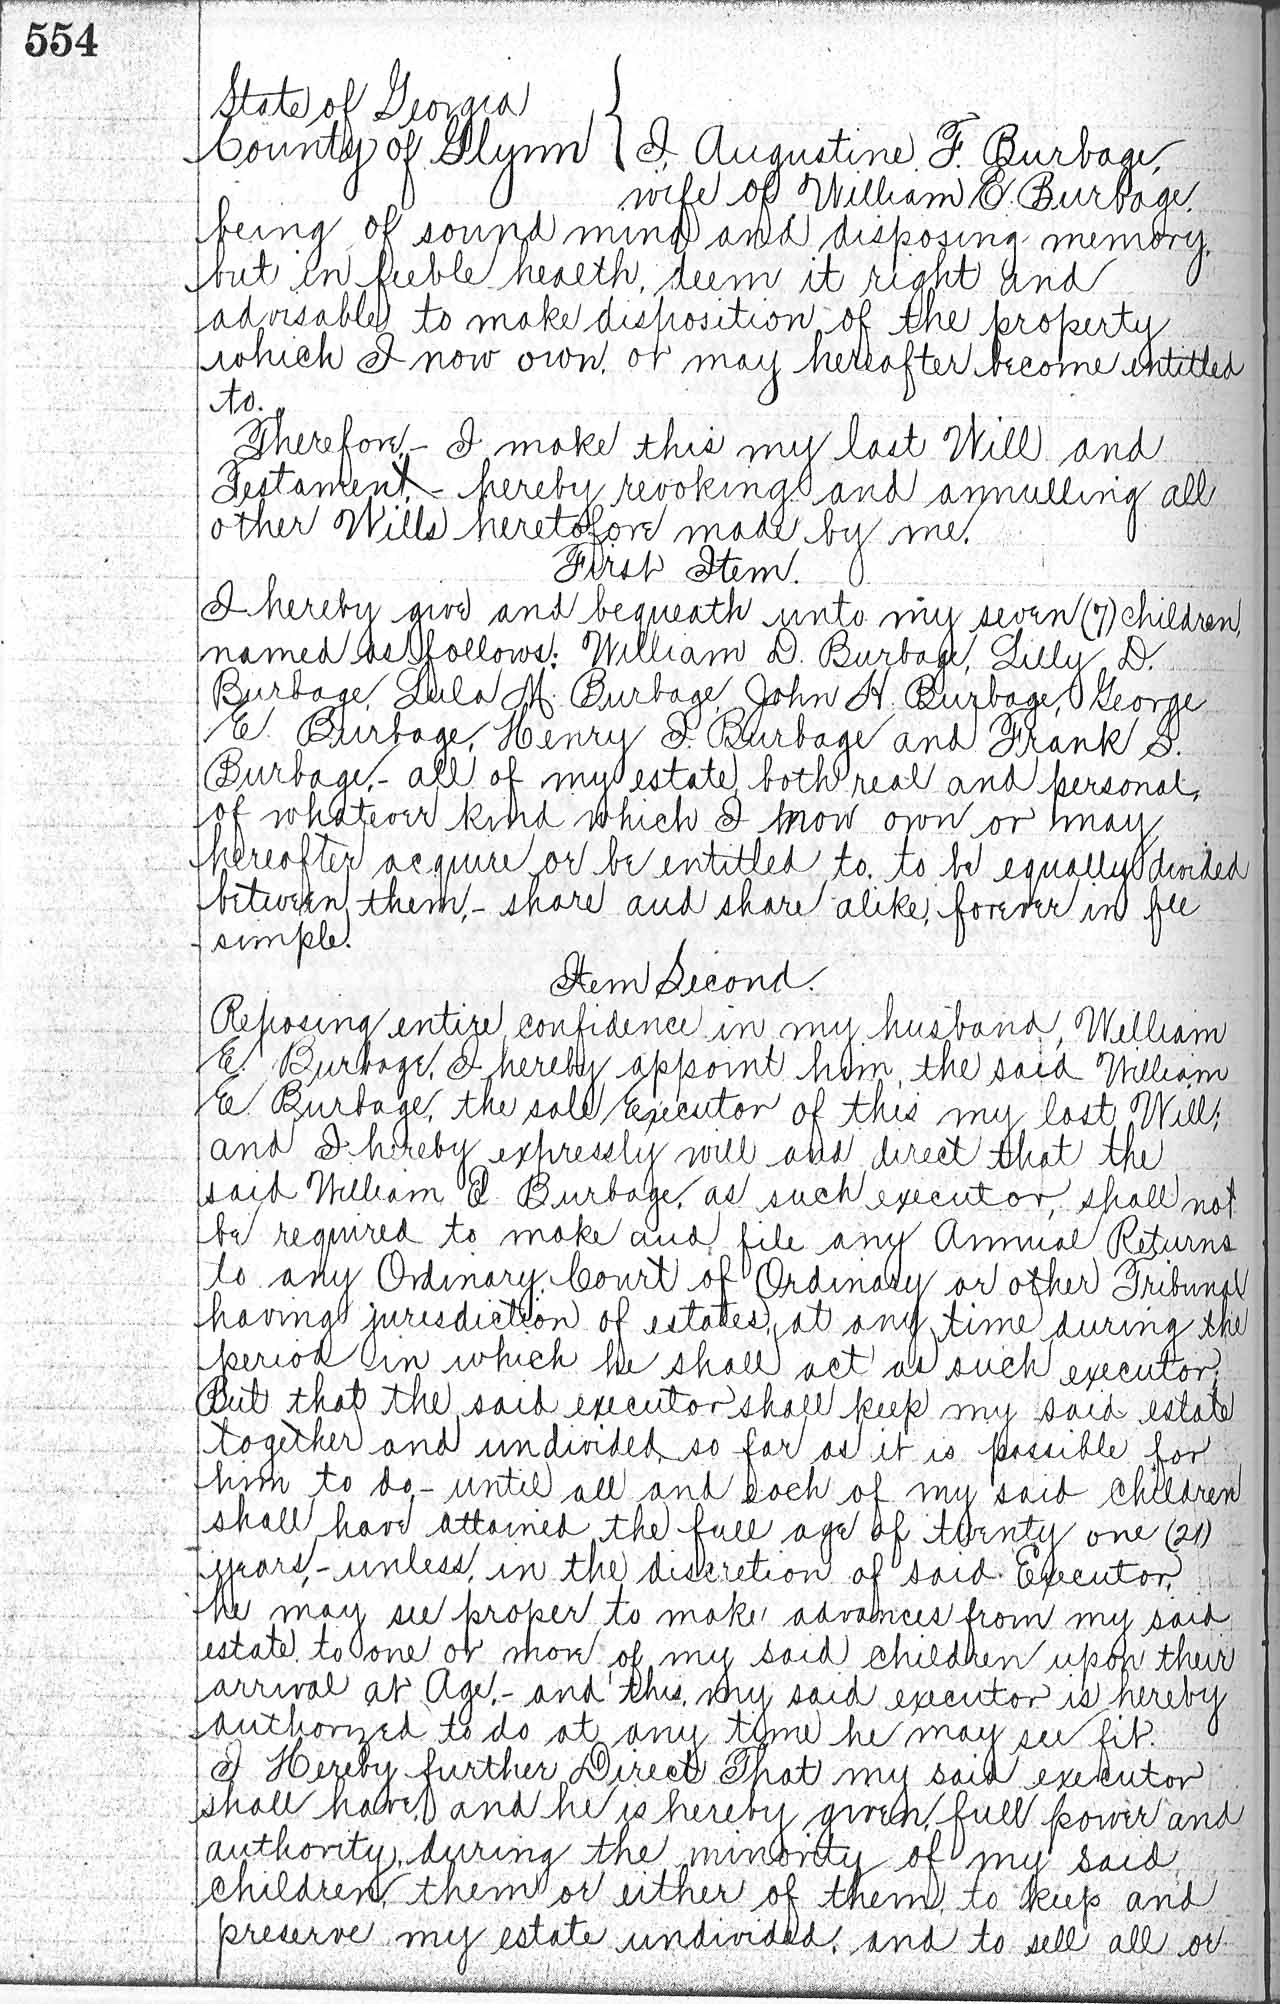 554
State of Georgia
County of Glynn { I, Augustine F. Burbage,
wife of William E. Burbage,
being of sound mind and disposing memory,
but in feeble health, deem it right and
advisable to make disposition of the property
which I now own, or may hereafter become entitled
to.
Therefore,- I make this my last Will and
Testament,- hereby revoking and annulling all
other Wills heretofore made by me.
First Item.
I hereby give and bequeath unto my seven (7) children,
named as follows: William D. Burbage, Lilly D.
Burbage, Lula M. Burbage, John H. Burbage, George
E. Burbage, Henry I. Burbage and Frank S.
Burbage,- all of my estate, both real and personal,
of whatever kind which I now own or may
hereafter acquire or be entitled to, to be equally divided
between them,- share and share alike, forever in fee
simple.
Item Second.
Reposing entire confidence in my husband, William
E. Burbage, I hereby appoint him, the said William
E. Burbage, the sole Executor of this my last Will;
and I hereby expressly will and direct that the
said William E. Burbage, as such executor, shall not
be required to make and file any Annual Returns
to any Ordinary, Court of Ordinary or other Tribunal
having jurisdiction of estates, at any time during the
period in which he shall act as such executor;
But that the said executor shall keep my said estate
together and undivided, so far as it is possible for
him to do,- until all and each of my said children
shall have attained the full age of twenty one (21)
years,- unless, in the discretion of said Executor,
he may see proper to make advances from my said
estate to one or more of my said children upon their
arrival at Age,- and this, my said executor is hereby
authorized to do at any time he may see fit.
I Hereby further Direct That my said executor
shall have, and he is hereby given, full power and
authority, during the minority of my said
children, them or either of them, to keep and
preserve my estate undivided, and to sell all or